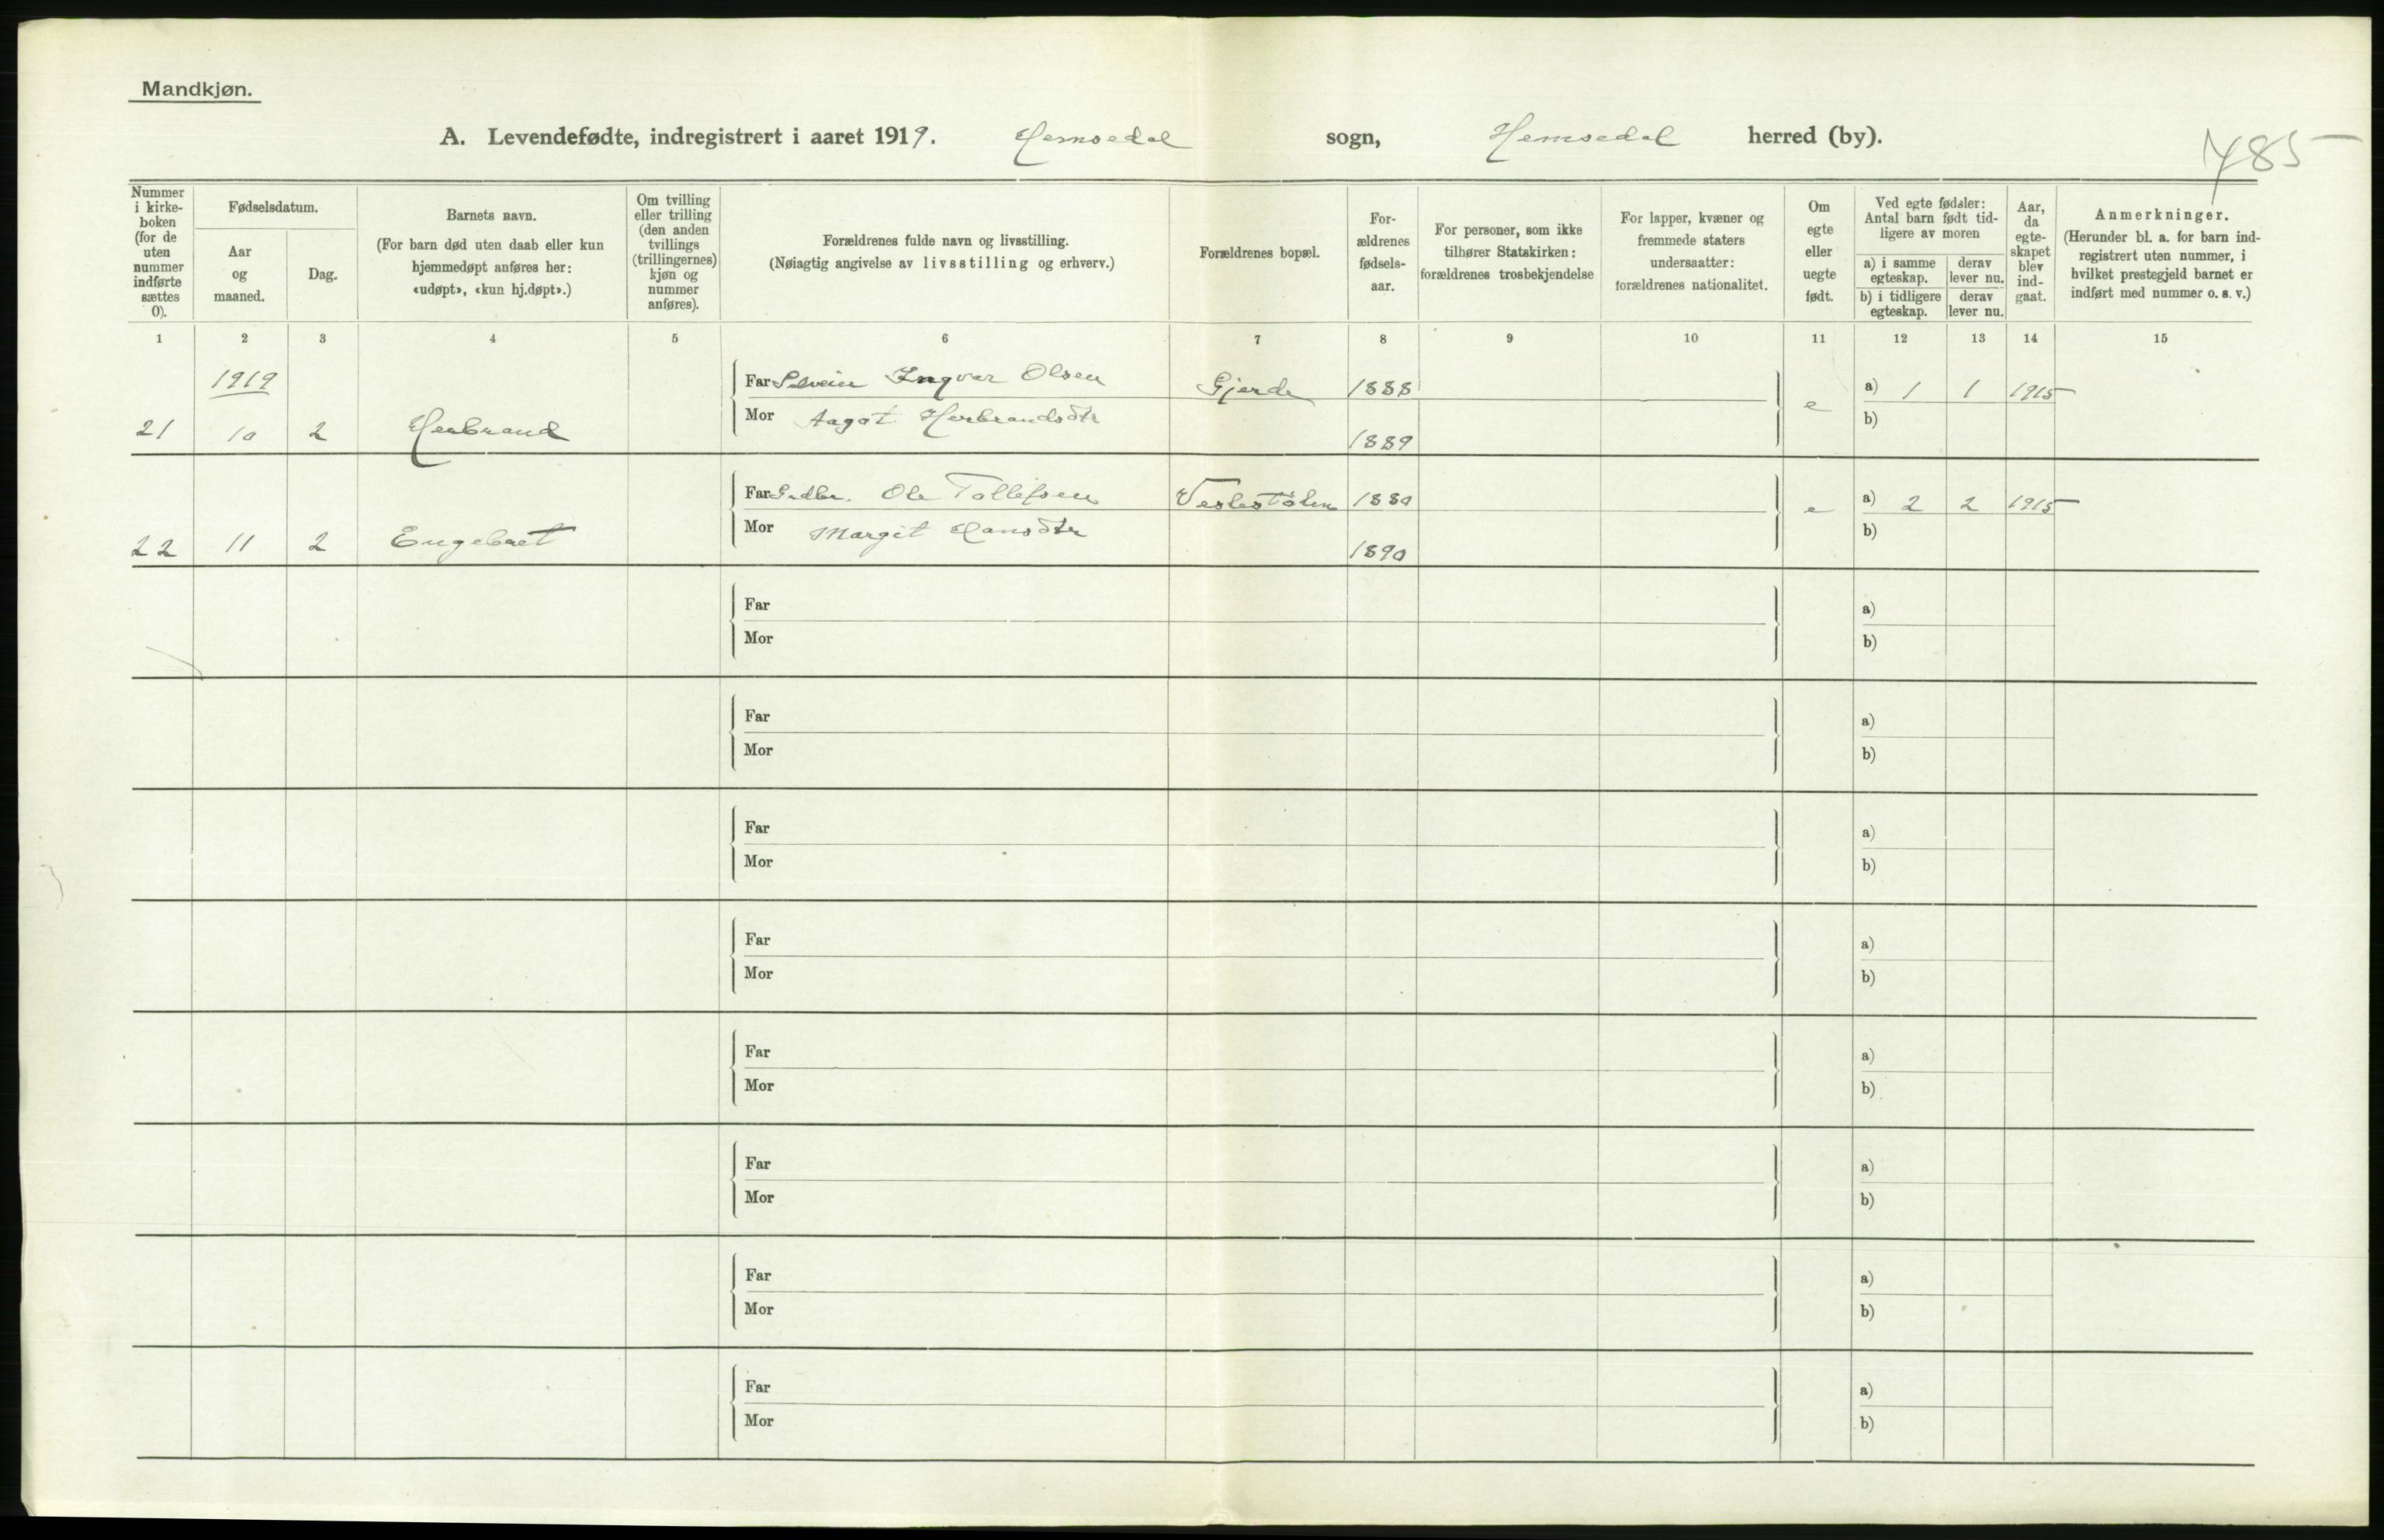 Mandkjøn.
A. Levendefødte, indregistrert i aaret 1919. Hemsedal sogn, Hemsedal herred (by).
785
Nummer i kirke-boken (for de uten nummer indførte sættes 0).
Fødselsdatum.
Aar og maaned.
Dag.
Barnets navn.
(For barn død uten daab eller kun hjemmedøpt anføres her: «udøpt», «kun hj.døpt».)
Om tvilling eller trilling (den anden tvillings (trillingernes) kjøn og nummer anføres).
Forældrenes fulde navn og livsstilling.
(Nøiagtig angivelse av livsstilling og erhverv.)
Forældrenes bopæl.
For-ældrenes fødsels-aar.
For personer, som ikke tilhører Statskirken: forældrenes trosbekjendelse
For lapper, kvæner og fremmede staters undersaatter: forældrenes nationalitet.
Om egte eller uegte født.
Ved egte fødsler: Antal barn født tid-ligere av moren
a) i samme egteskap.
derav lever nu.
b) i tidligere egteskap.
derav lever nu.
Aar, da egte-skapet blev ind-gaat.
Anmerkninger.
(Herunder bl. a. for barn ind-registrert uten nummer, i hvilket prestegjeld barnet er indført med nummer o. s. v.)
1 2 3 4 5 6 7 8 9 10 11 12 13 14 15
1919 Far Ingvar Olsen Gjerde 1888 e a) 1 1 1915
21 10 2 Herbrand Mor Aagot Herbrandsdtr 1889 b)
Far Grdbr. Ole Tollefsen Veslestølen 1880 e a) 2 2 1915
22 11 2 Engebret Mor Margit Hansdtr 1890 b)
Far a)
Mor b)
Far a)
Mor b)
Far a)
Mor b)
Far a)
Mor b)
Far a)
Mor b)
Far a)
Mor b)
Far a)
Mor b)
Far a)
Mor b)